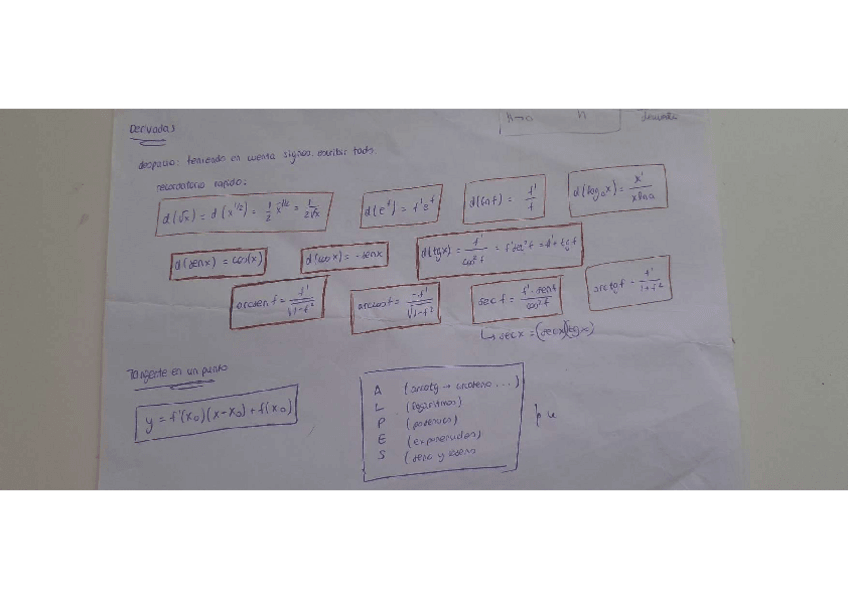 h→0 h
Derivadas
despacio: teniendo en cuenta signos. escribir todo.
recordatorio rapido:
d(√x) = d(x^1/2) = 1/2 x^-1/2 = 1/2√x
d(e^f) = f'e^f
d(ln f) = f'/f
d(log_a x) = x'/x ln a
d(sen x) = cos(x)
d(cos x) = -sen x
d(tg x) = f'/cos² f = f' sec² f =
arcsen f = f'/√1-f²
arccos f = -f'/√1-f²
sec f = f'·sen f/cos² f
arctg f = f'/1+f²
↳ sec x = (sec x)(tg x)
Tangente en un punto
y = f'(x₀)(x-x₀) + f(x₀)
A (arcotg → arcoseno ...)
L (logaritmos)
P (potencias)
E (exponenciales)
S (seno y coseno